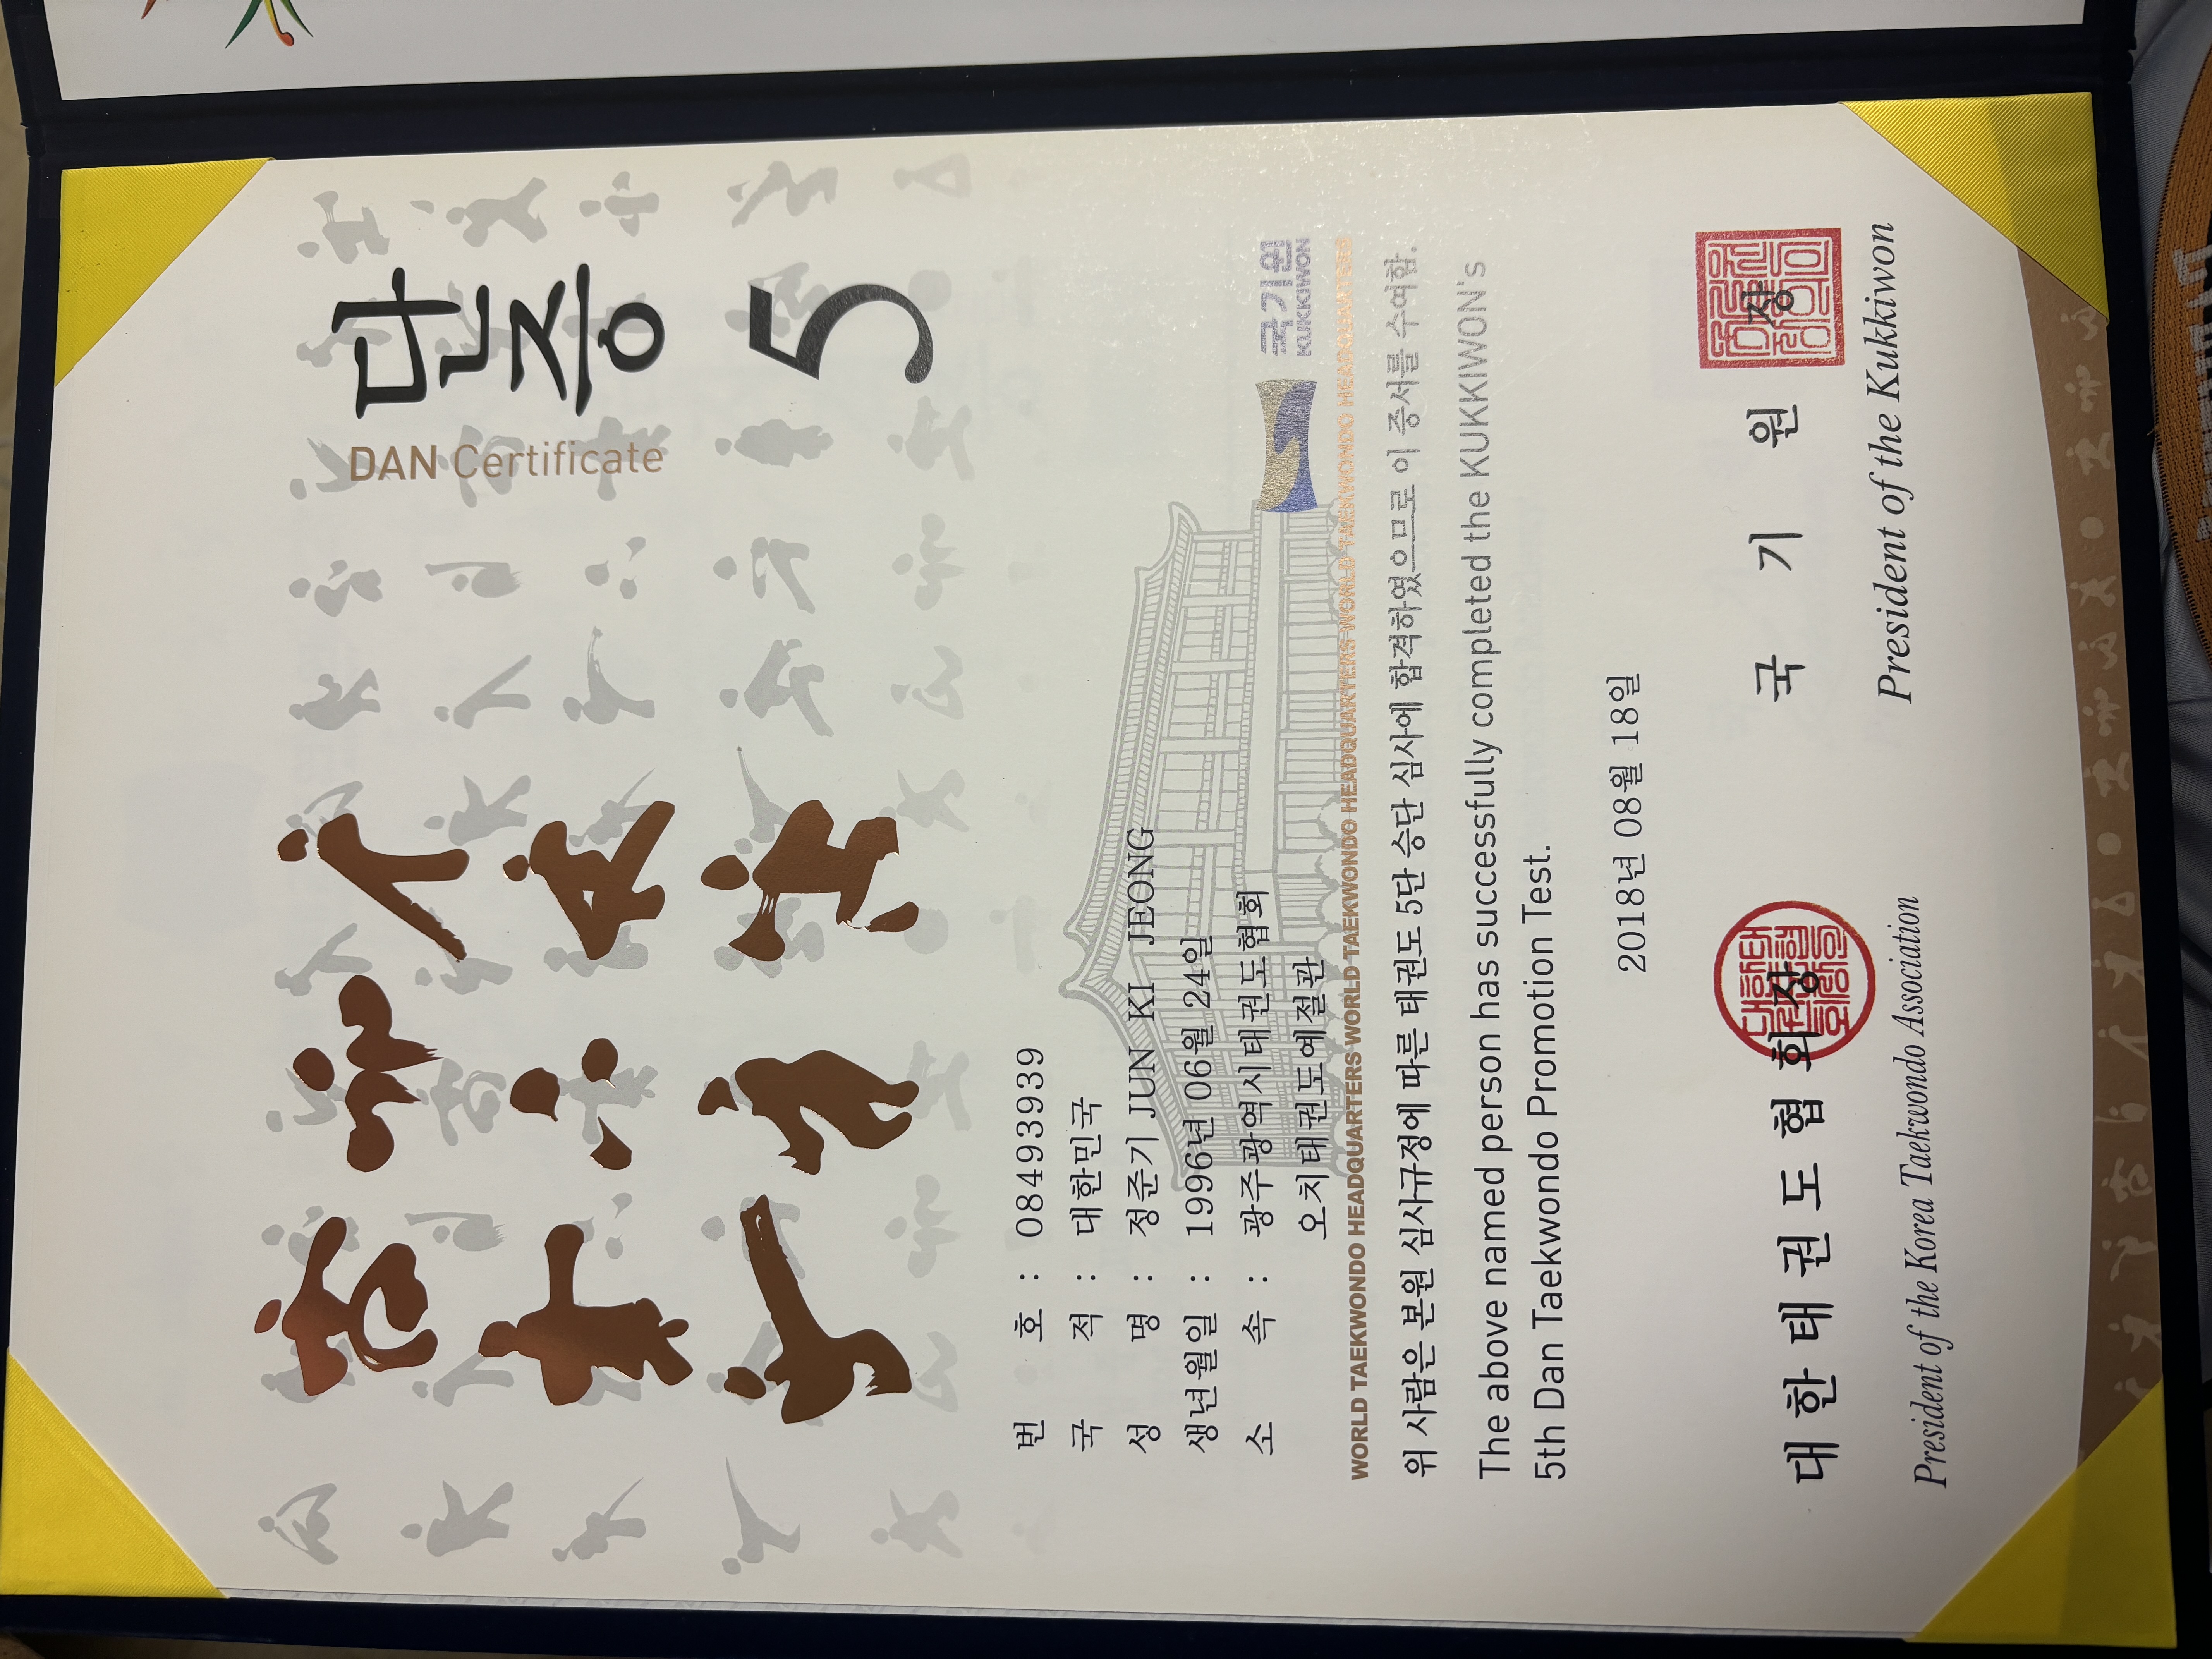 단증
DAN Certificate
5
번 호 : 08493939
국 적 : 대한민국
성 명 : 정준기 JUN KI JEONG
생년월일 : 1996년 06월 24일
소 속 : 광주광역시태권도협회
오치태권도예절관
국기원
KUKKIWON
WORLD TAEKWONDO HEADQUARTERS WORLD TAEKWONDO HEADQUARTERS WORLD TAEKWONDO HEADQUARTERS
위 사람은 본원 심사규정에 따른 태권도 5단 승단 심사에 합격하였으므로 이 증서를 수여함.
The above named person has successfully completed the KUKKIWON's
5th Dan Taekwondo Promotion Test.
2018년 08월 18일
대한태권도협회장 국기원장
President of the Korea Taekwondo Association President of the Kukkiwon